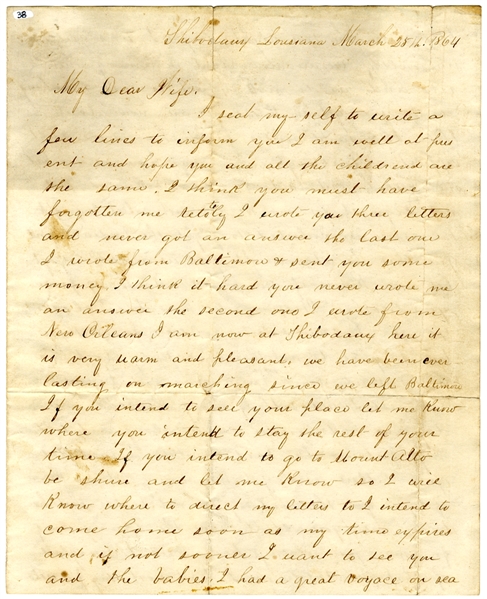 38
Thibodaux Lousiana March 28th 1864
My Dear Wife.
I seat my-self to write a
few lines to inform you I am well at pres
ent and hope you and all the childrend are
the same. I think you must have
forgotten me I wrote you three letters
and never got an answer the last one
I wrote from Baltimore & sent you some
money. I think it hard you never wrote me
an answer the second one I wrote from
New Orleans I am now at Thibodaux here it
is very warm and pleasant, we have been ever-
lasting on marching since we left Baltimore
If you intend to sell your place let me know
where you intend to stay the rest of your
time If you intend to go to Mount Alto
be shure and let me know so I will
know where to direct my letters to I intend to
come home soon as my time expires
and if not sooner I want to see you
and the babies. I had a great voyace on sea